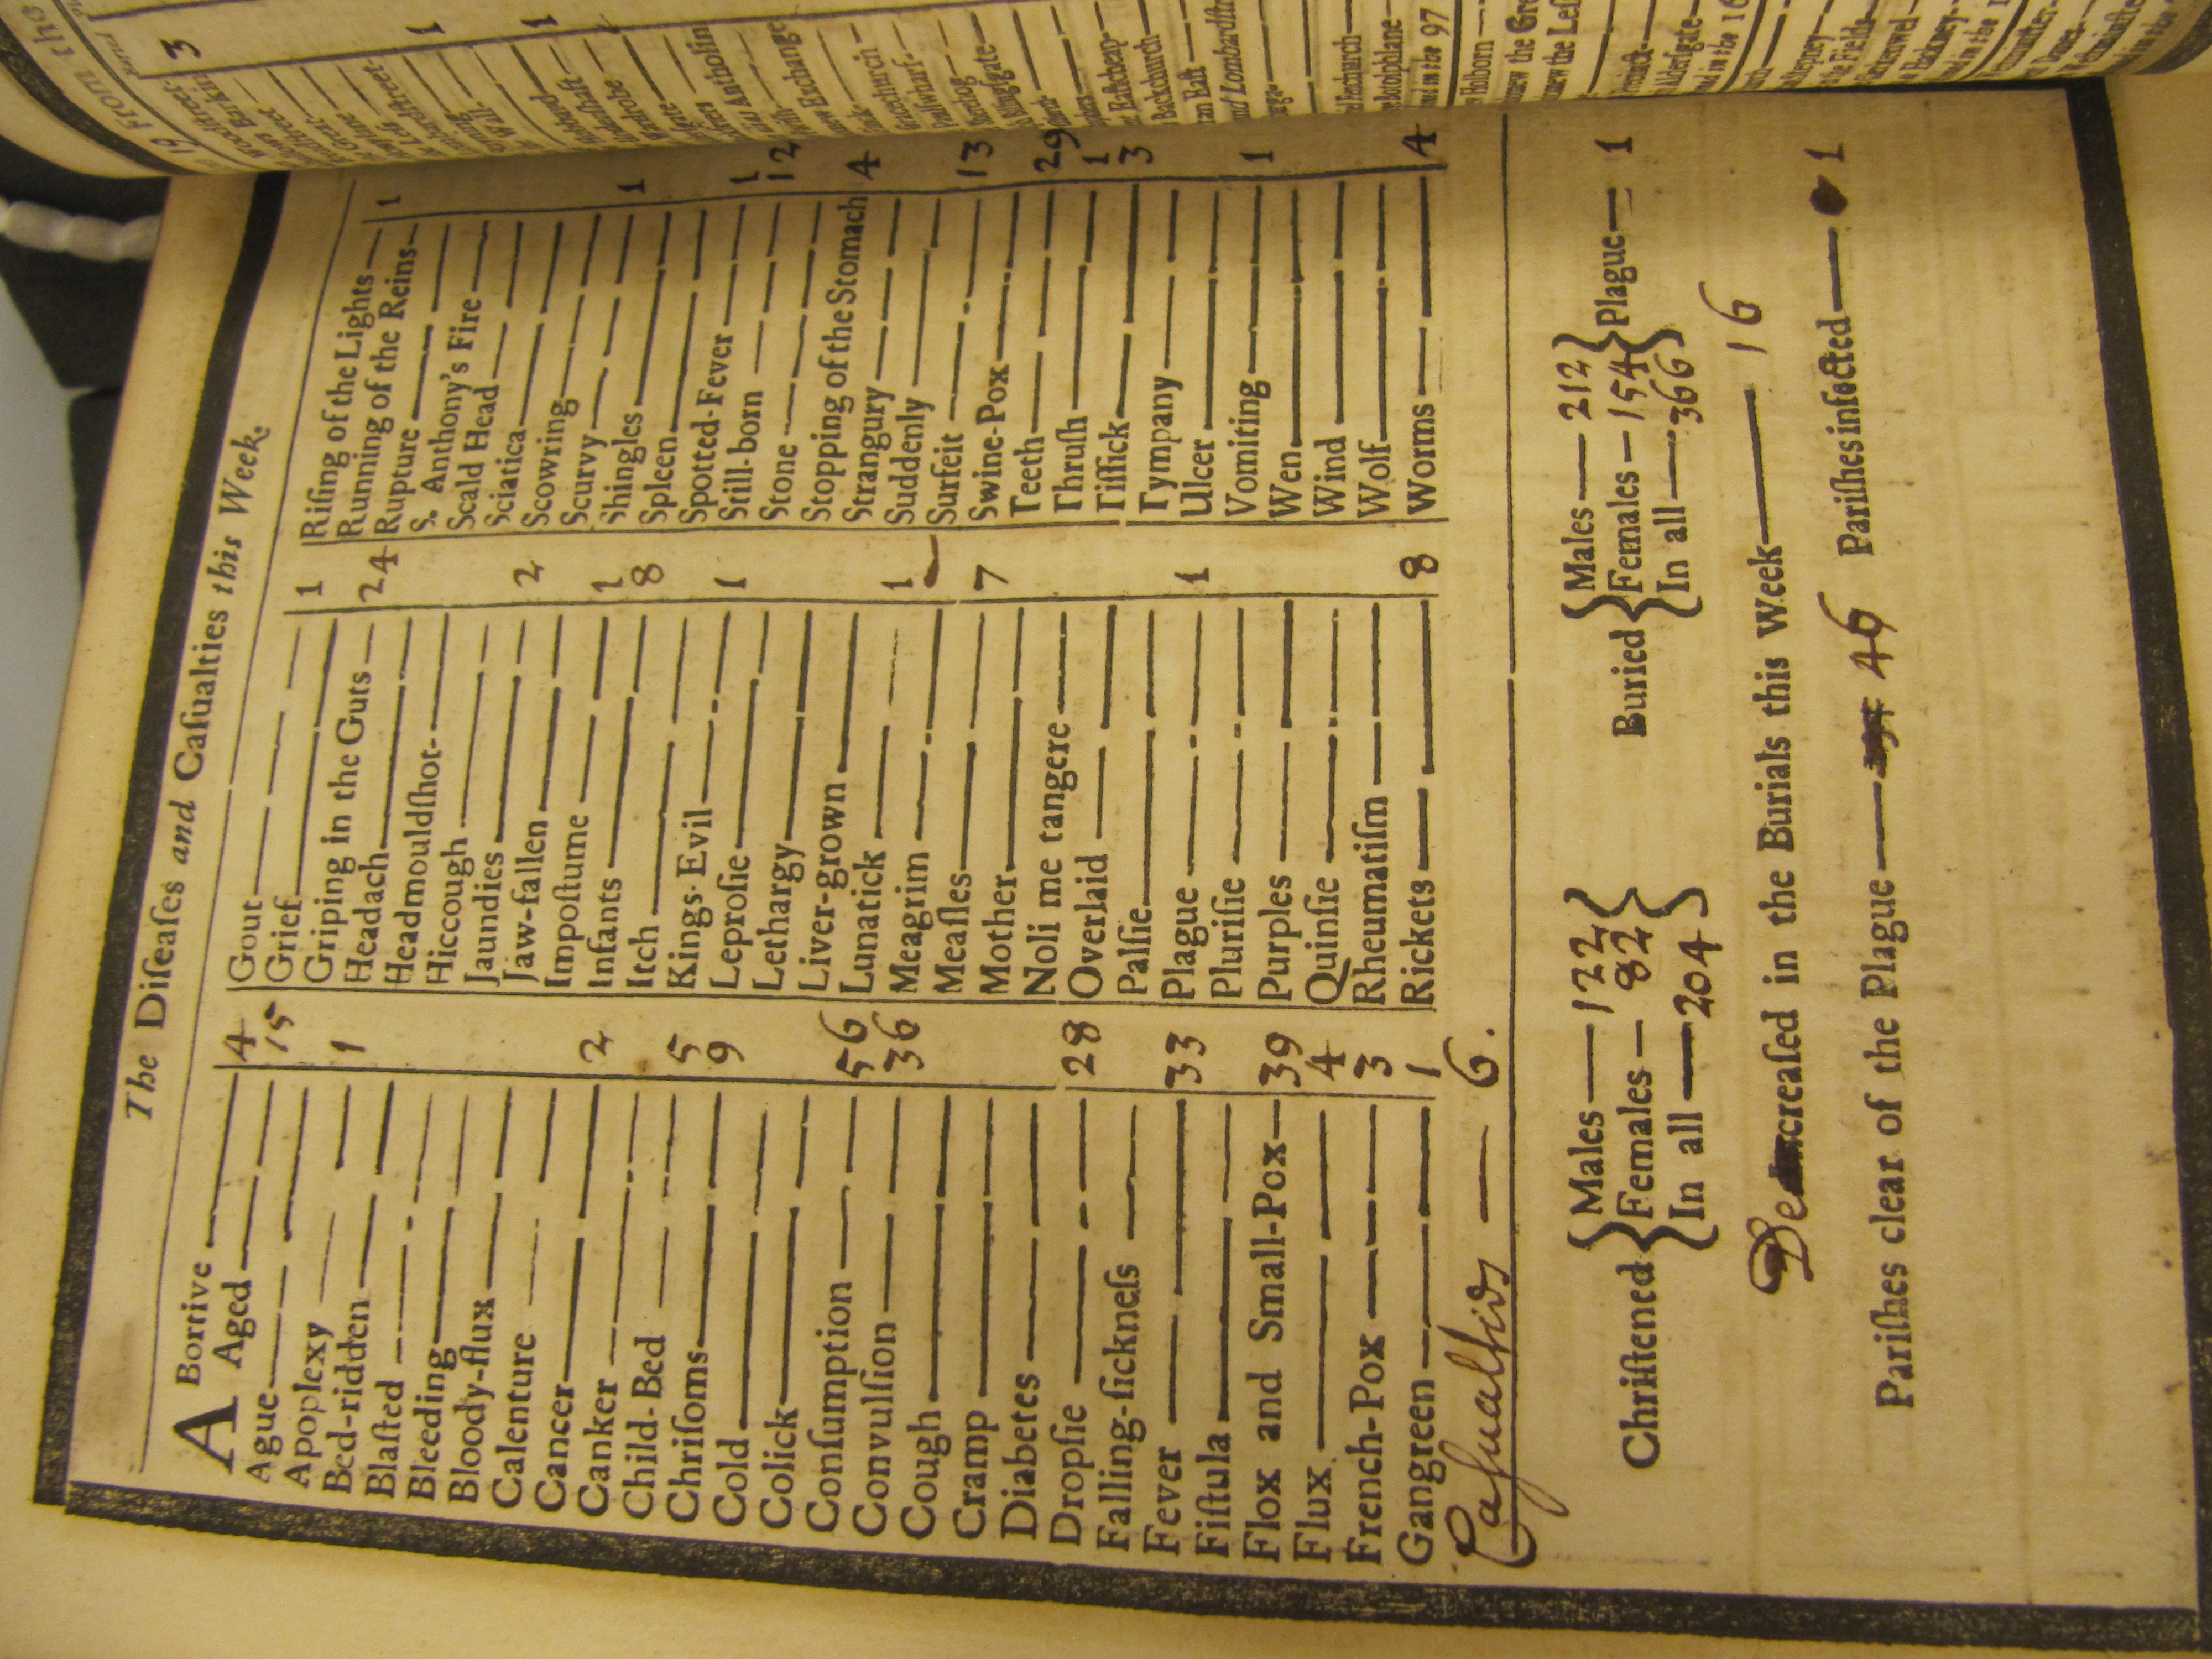 The Diseases and Casualties this Week.
ABortive 4
Aged 15
Ague
Apoplexy 1
Bed-ridden
Blasted
Bleeding
Bloody-flux
Calenture
Cancer 2
Canker
Child-Bed 5
Chrisoms 9
Cold
Colick
Consumption 56
Convulsion 36
Cough
Cramp
Diabetes
Dropsie 28
Falling-sickness
Fever 33
Fistula
Flox and Small-Pox 39
Flux 4
French-Pox 3
Gangreen 1
Casualtids — 6.
Gout 1
Grief
Griping in the Guts 24
Headach
Headmouldshot
Hiccough
Jaundies 2
Jaw-fallen
Impostume 1
Infants 8
Itch
Kings-Evil 1
Leprosie
Lethargy
Liver-grown
Lunatick 1
Meagrim
Measles 7
Mother
Noli me tangere
Overlaid
Palsie
Plague 1
Plurisie
Purples
Quinsie
Rheumatism
Rickets 8
Rising of the Lights 1
Running of the Reins
Rupture
S. Anthony's Fire
Scald Head
Sciatica
Scowring
Scurvy 1
Shingles
Spleen
Spotted-Fever 1
Still-born 12
Stone
Stopping of the Stomach 4
Strangury
Suddenly
Surfeit 13
Swine-Pox
Teeth 29
Thrush 1
Tissick 3
Tympany
Ulcer
Vomiting 1
Wen
Wind
Wolf
Worms 4
Christened { Males — 122 Females — 82 In all — 204 }
Buried { Males — 212 Females — 154 In all — 366 } Plague — 1
Decreased in the Burials this Week — 16
Parishes clear of the Plague — 46 Parishes infected — 1